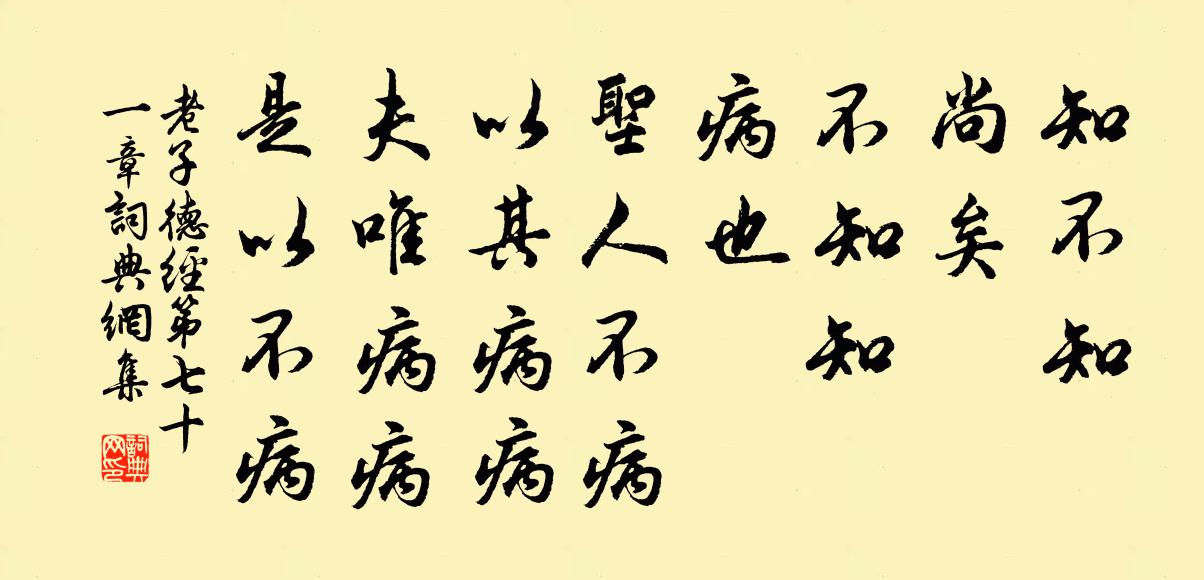 知不知
尚矣
不知知
病也
聖人不病
以其病病
夫唯病病
是以不病
老子德經第七十
一章詞典網集
詞典
网印